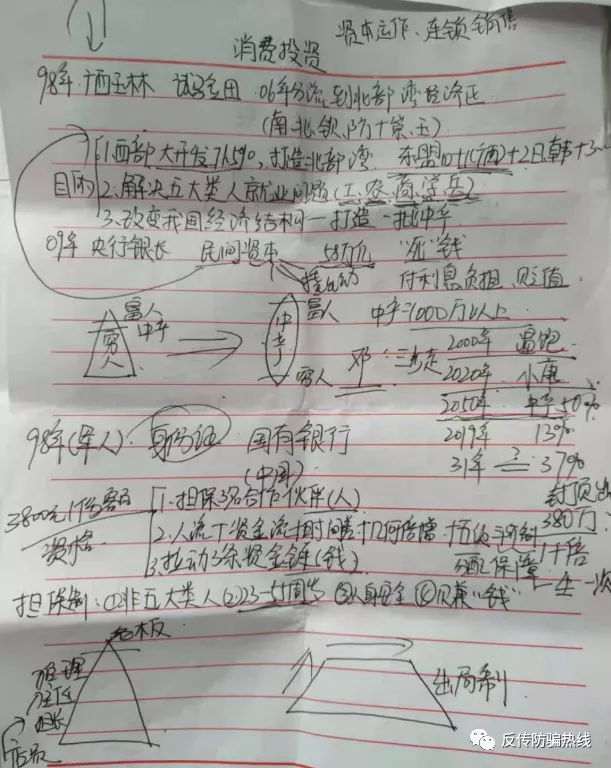 资本运作、连锁销售
消费投资
98年 广西玉林 试验田 06年分流到北部湾经济区
(南、北、钦、防+崇、玉)
目的 1.西部大开发 打造北部湾 东盟10+1(广西)+2日、韩+3…
2.解决五大类人就业问题(工、农、商、学、兵)
3.改变我国经济结构—打造一批中产
09年 央行银长 民间资本 58万亿 "死"钱
付利息负担、贬值
富人
中产
穷人
富人
中产
穷人
中产=1000万以上
邓 三步走
2000年 温饱
2020年 小康
2050年 中产50%
2019年 13%
31年 = ? 37%
98年(军人) 身份证 国有银行
(中国)
3800元1份 资格
1.担保3名合作伙伴(人)
2.人流+资金流+时间差+几何倍增+五级三阶制
3.拉动3条资金链(钱)
封顶
380万
1千倍
分配保障 一生一次
担保制:①非五大类人②23—55周岁 ③人身安全 ④ "钱"
老板
推理
主任
组长
店员
出局制
反传防骗热线